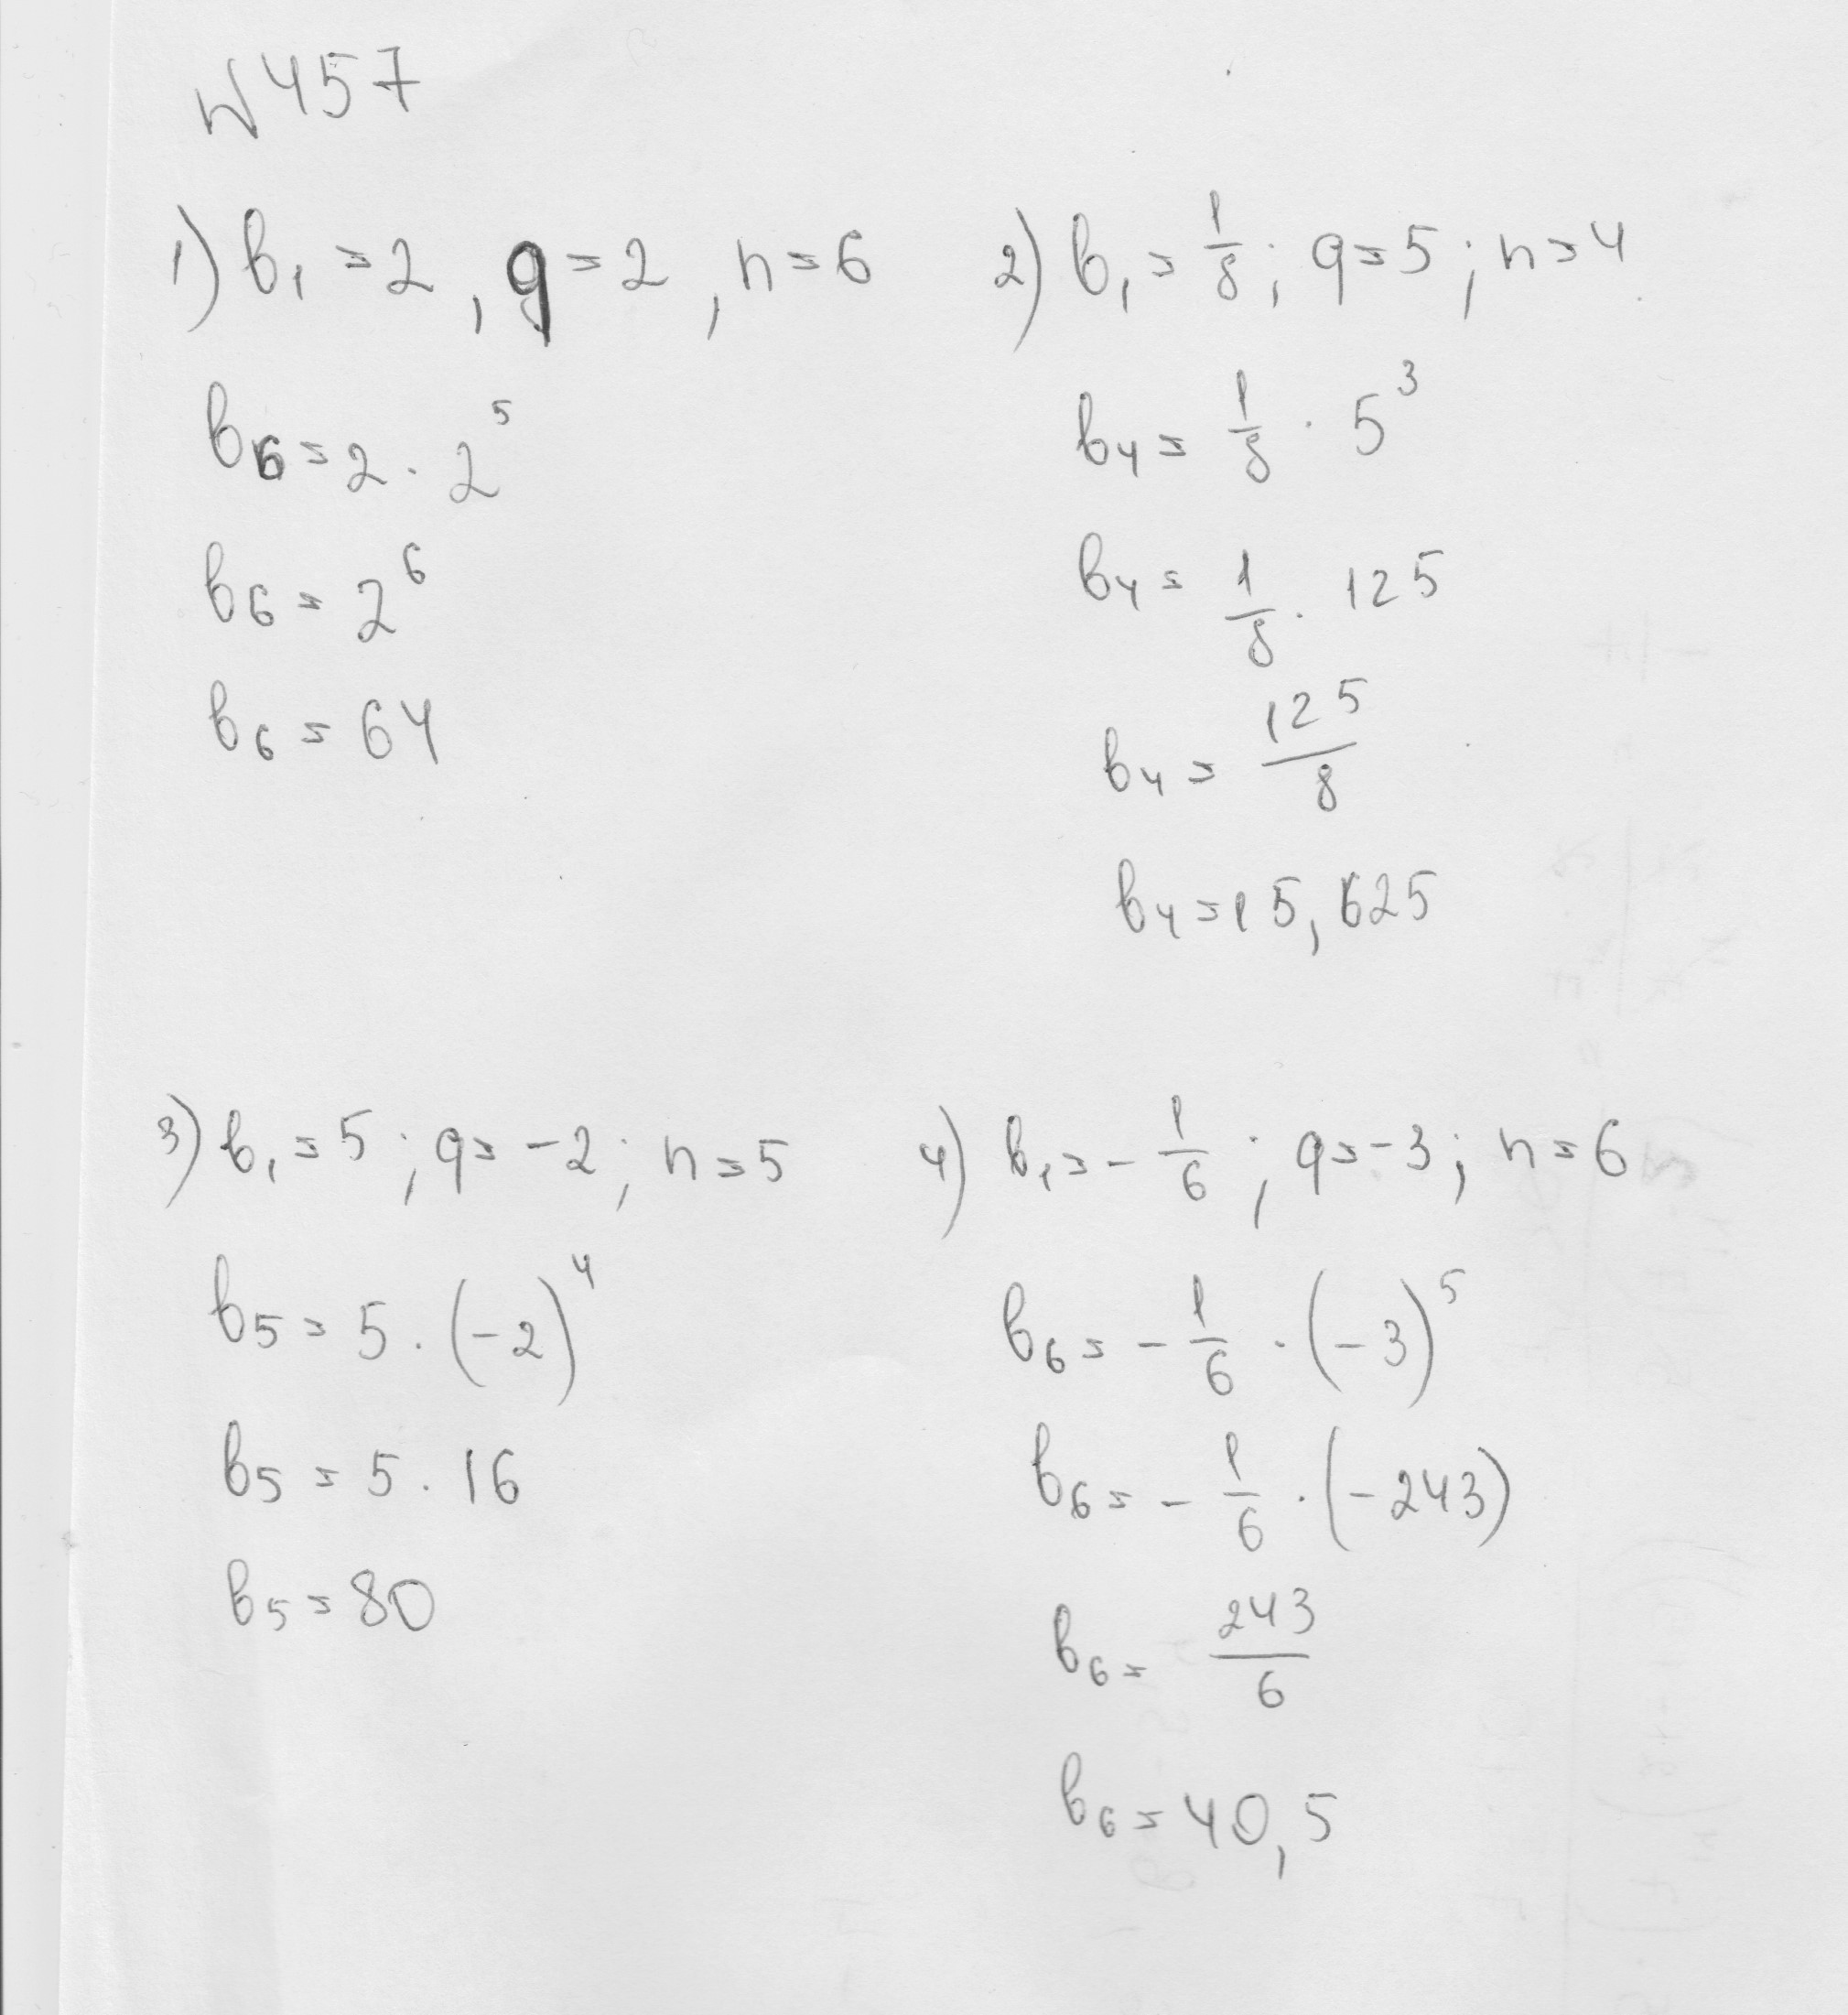 № 457
1) b₁ = 2, q = 2, n = 6
b₆ = 2 · 2⁵
b₆ = 2⁶
b₆ = 64
2) b₁ = 1/8; q = 5; n = 4
b₄ = 1/8 · 5³
b₄ = 1/8 · 125
b₄ = 125/8
b₄ = 15,625
3) b₁ = 5; q = -2; n = 5
b₅ = 5 · (-2)⁴
b₅ = 5 · 16
b₅ = 80
4) b₁ = - 1/6; q = -3; n = 6
b₆ = - 1/6 · (-3)⁵
b₆ = - 1/6 · (-243)
b₆ = 243/6
b₆ = 40,5